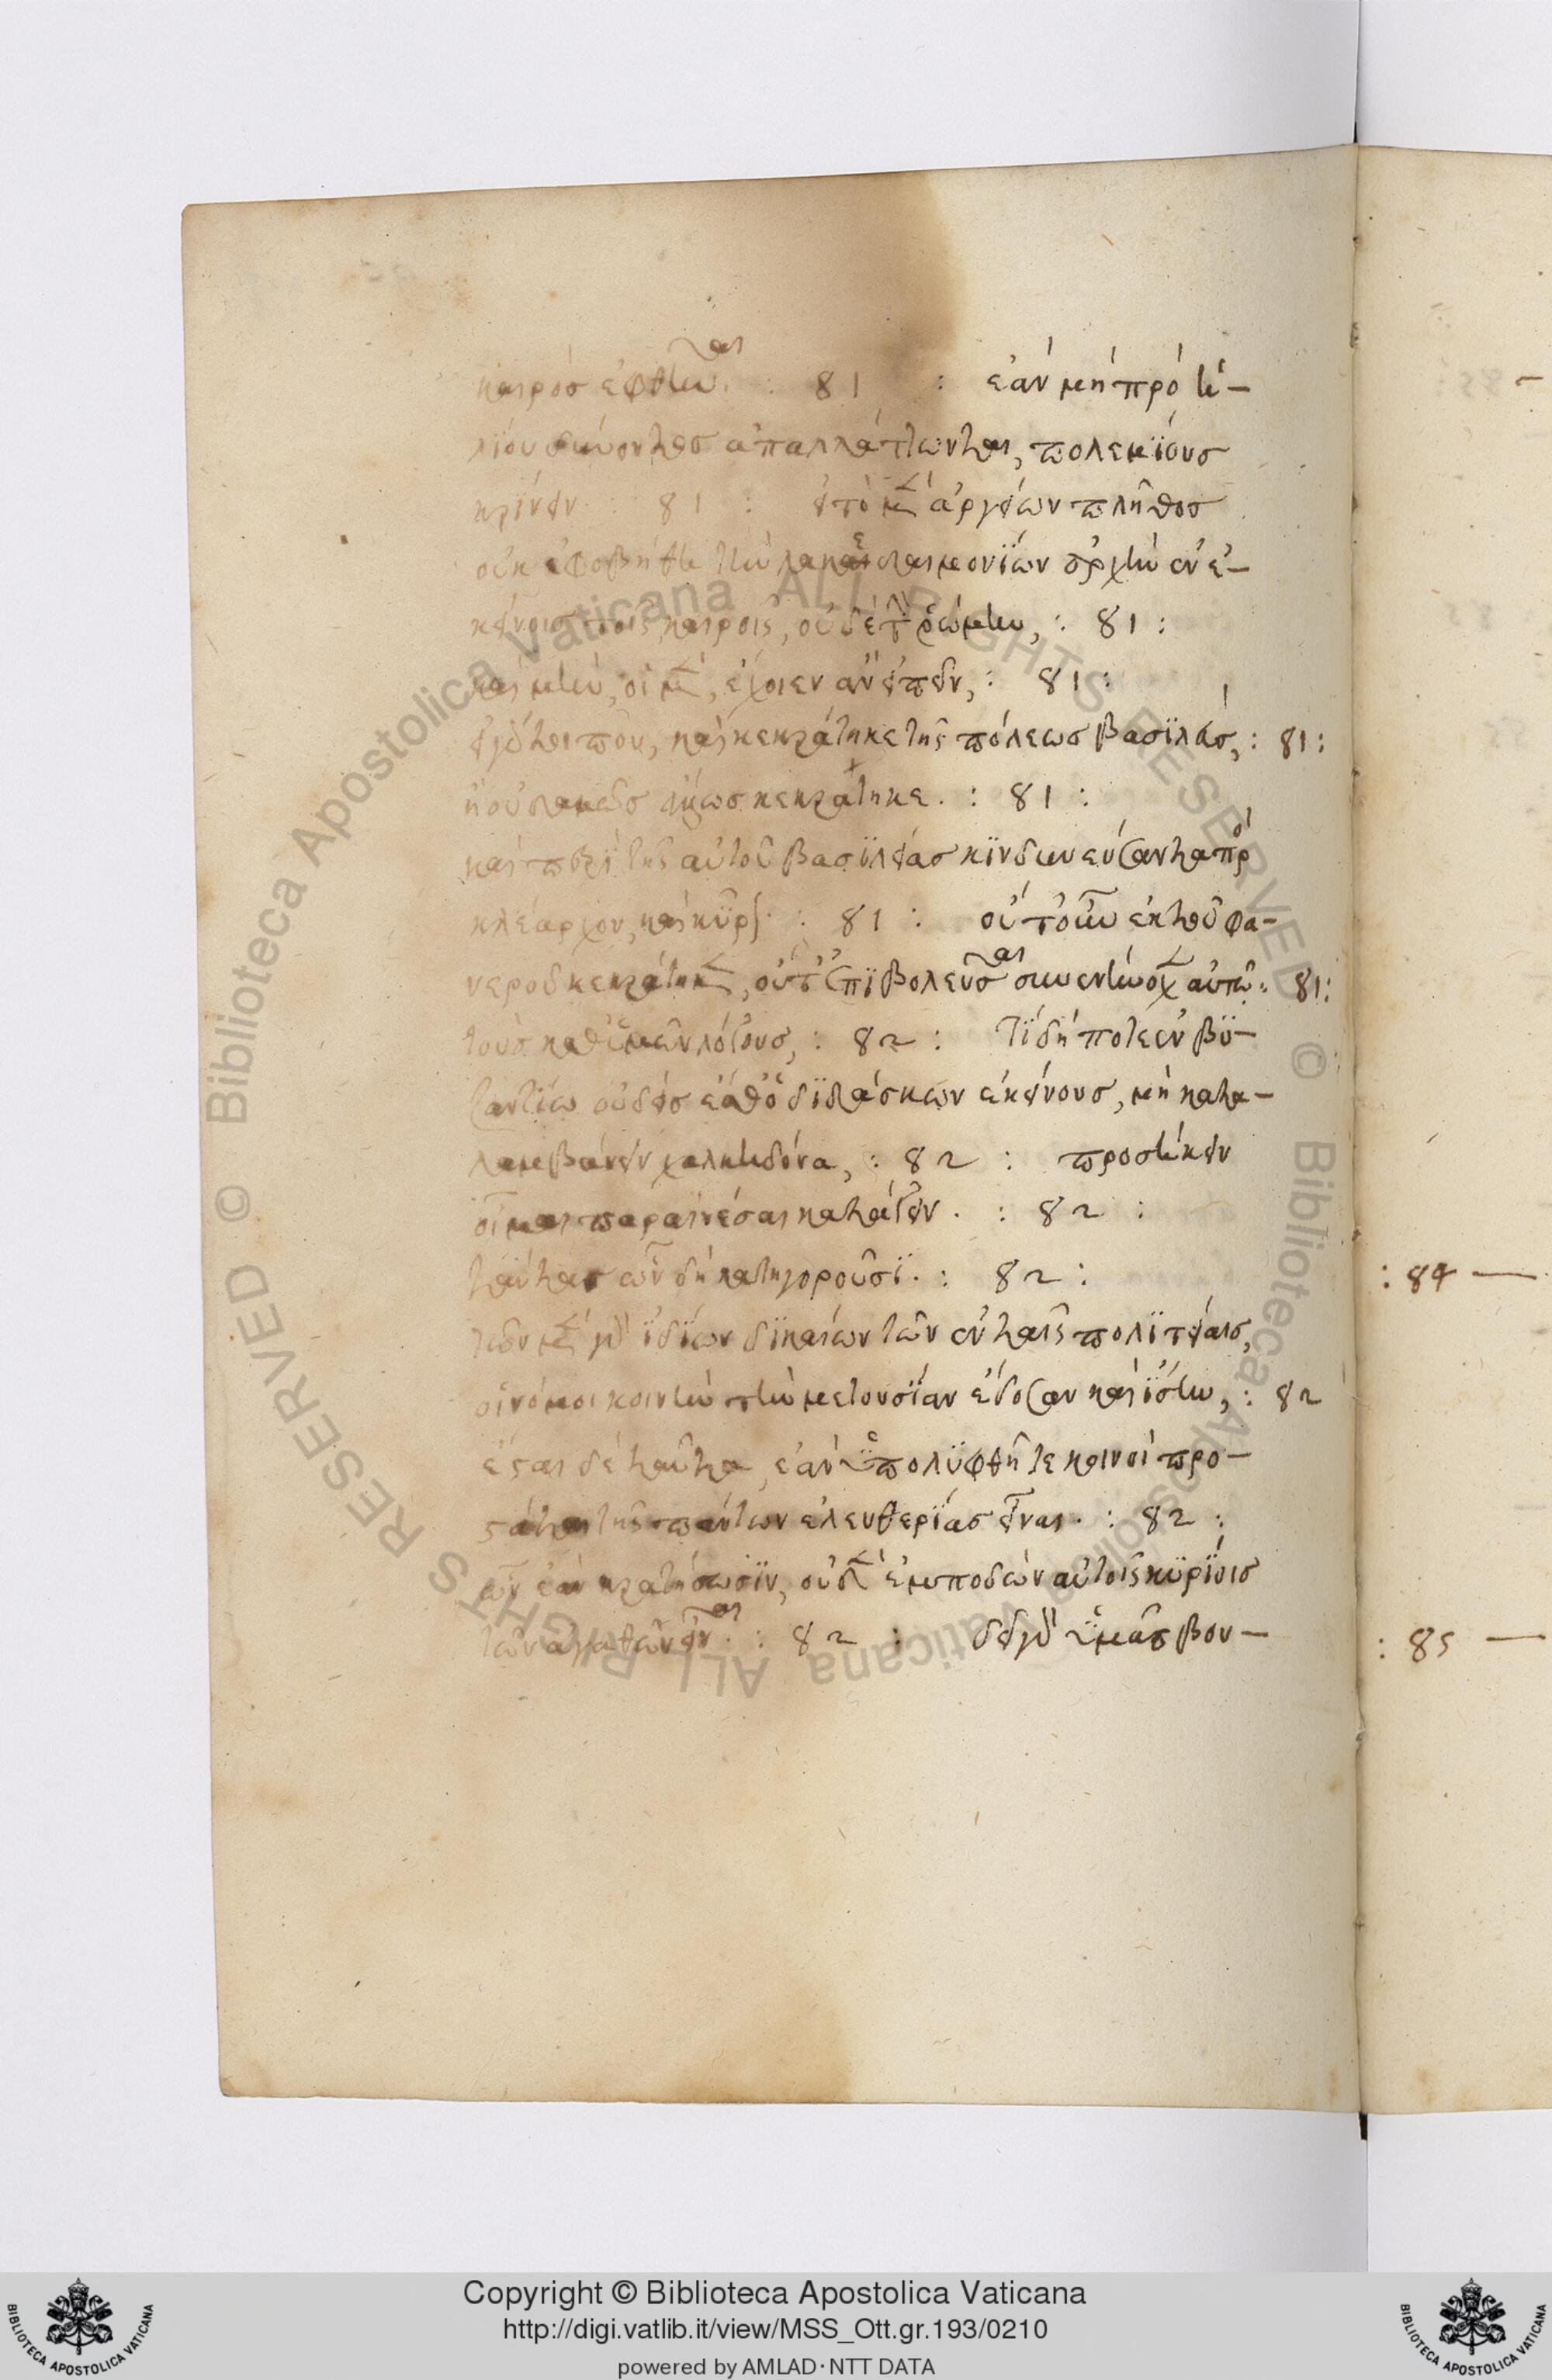 καιρὸς ἐφθῶσαι. : 81 : ἐὰν μὴ πρὸ ἡ-
λίου δύνοντος ἀπαλλάττωνται, πολεμίους
κρίνειν : 81 : εἶτα μὲν ἀργείων πλῆθος
οὐκ ἐφοβήθη τὴν λακεδαιμονίων ἀρχὴν ἐν ἐ-
κείνοις τοῖς καιροῖς, οὐδὲ τ ῥώμην, : 81 :
καὶ μὴν, οἶμαι, ἔχοιεν ἂν εἰπεῖν, : 81 :
κεκράτηκε τῆς πόλεως βασιλεὺς, : 81 :
κεκράτηκε . : 81 :
καὶ περὶ τῆς αὐτοῦ βασιλείας κινδυνεύσαντα πρὸ
κλέαρχον, καὶ κῦρον : 81 : οὔτ᾽ οὖν ἐκ τοῦ φα-
νεροῦ κεκράτηκεν, οὔτ᾽ ἐπιβουλεῦσαι συνενήνοχεν αὐτῷ : 81 :
τοὺς καθ᾽ ἡμῶν λόγους, : 82 : τί δή ποτε ἐν βυ-
ζαντίω οὐδεὶς ἐσθ᾽ ὁ διδάσκων ἐκείνους, μὴ κατα-
λαμβάνειν χαλκηδόνα, : 82 : προσήκειν
οἶμαι παραινέσαι κατάγειν . : 82 :
ταύτας ὧν δὴ κατηγοροῦσι . : 82 :
τῶν μὲν γὰρ ἰδίων δικαίων τῶν ἐν ταῖς πολιτείαις,
οἱ νόμοι κοινὴν τὴν μετουσίαν ἔδοσαν καὶ ἴσην, : 82
ἔσται δὲ ταῦτα, ἐὰν ὑποληφθῆτε κοινοὶ προ-
στάται τῆς πάντων ἐλευθερίας εἶναι . : 82 :
ὧν ἐὰν κρατήσωσιν, οὐδὲν ἐμποδὼν αὐτοῖς κυρίοις
τῶν ἀγαθῶν εἶναι . : 82 : δεῖ γὰρ ὑμᾶς βου-
: 84 —
: 85 —
Copyright © Biblioteca Apostolica Vaticana
http://digi.vatlib.it/view/MSS_Ott.gr.193/0210
powered by AMLAD·NTT DATA
BIBLIOTECA APOSTOLICA VATICANA
BIBLIOTECA APOSTOLICA VATICANA
© Biblioteca Apostolica Vaticana ALL RIGHTS RESERVED
© Biblioteca Apostolica Vaticana ALL RIGHTS RESERVED